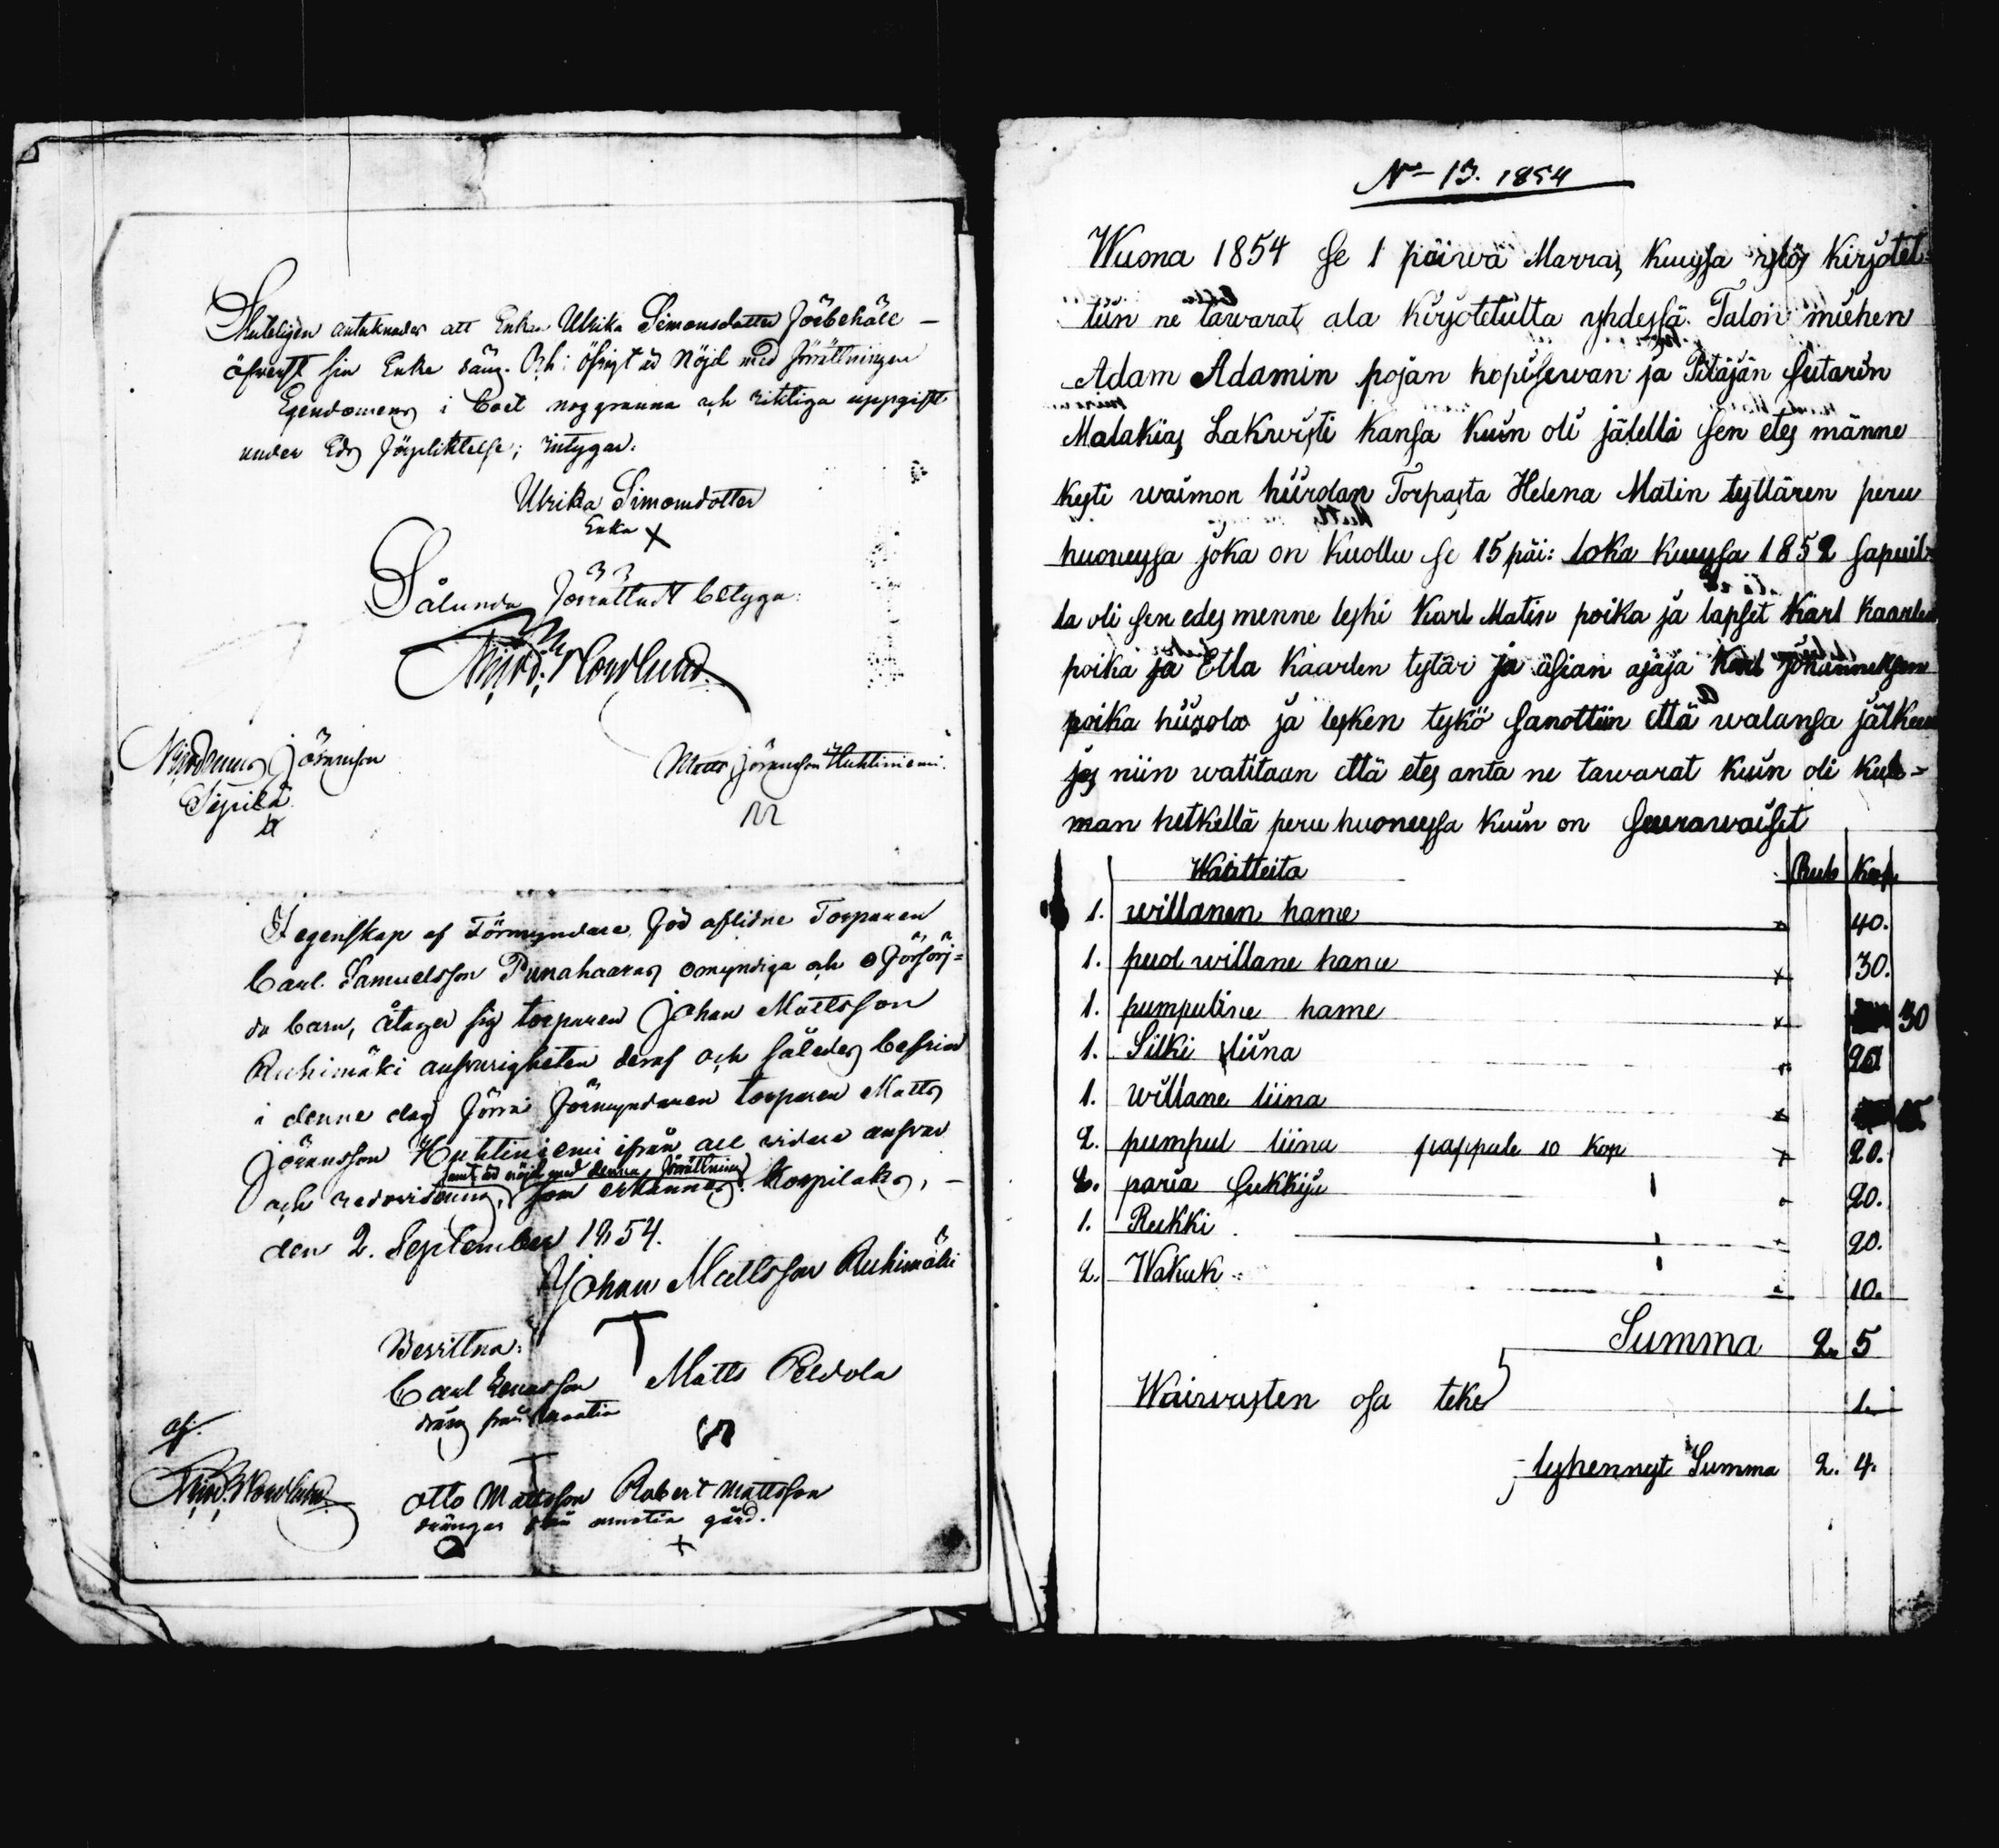 Sluteligen antecknades att Enkan Ulrika Simonsdotter förbehåll
öfverst sin Enke säng. Och i öfrigt är Nöjd med förrättningen
Egendomens i boet noggranna och riktiga uppgift
under Eds förpliktelse; intygar:
Ulrika Simonsdotter
Enka X
Sålunda förrättadt betyga:
Nicodemus Jöransson
Seppilä
Matts Jöransson Huhtiniemi.
I egenskap af Förmyndare för aflidne Torparen
Carl Samuelsson Punahaaras omyndiga och oförsörj=
da barn, åtager sig torparen Johan Mattsson
Ruhimäki ansvarigheten deraf och således befrias
i denne dag förra förmyndaren torparen Matts
Jöransson Huhtiniemi ifrån all vidare ansvar
samt är nöjd med denna förrättning
och redovisning, som erkännes. Korpilaks, —
den 2. September 1854.
Johan Mattsson Ruhimäki
Bevittna:
Carl Matts Peldola
dräng från
af.
Otto Mattsson Robert Mattsson
drängar från gård.
X
No 13. 1854
Wuona 1854 se 1 päiwä Marras kuusa ylös kirjotet
tiin ne tawarat ala kirjotetulta yhdessä Talon miehen
Adam Adamin pojan kopisewan ja Pitäjän sutarin
Malakias Lakwisti kansa kuin oli jälellä sen etes männe
kesti waimon hiirolan Torpasta Helena Matin tyttären peru
huoneussa joka on kuollu se 15 päi: loka kuussa 1852 sapuil
la oli sen edes menne leski Karl Matin poika ja lapset Karl Kaarlen
poika ja Etla Kaarlen tytär ja asian ajaja Karl Johanneksen
poika hiirola ja lesken tykö sanottiin että walansa jälkeen
jos niin watitaan että etes anta ne tawarat kuin oli kuole=
man hetkellä peru huoneussa kuin on seurawaiset
Waatteita Rub Kop
1. willanen hame 40.
1. puol willane hame 30.
1. pumpuline hame 30
1. Silki liina 20
1. willane liina 15
2. pumpul liina pappale 10 kop 20.
2. paria sukkija 20.
1. Rukki 20.
2. Wakuk 10.
Summa 2. 5
Waiwasten osa teke 1.
lyhennyt Summa 2. 4.